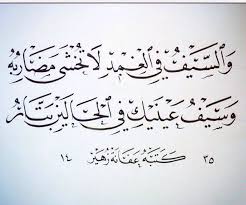 وَالسَّيْفُ فِي الْغِمْدِ لَا تُخْشَى مَضَارِبُهُ
وَسَيْفُ عَيْنَيْكَ فِي الْحَالَيْنِ بَتَّارُ
٣٥ كَتَبَهُ عَفَانَة زُهَيْر ١٤